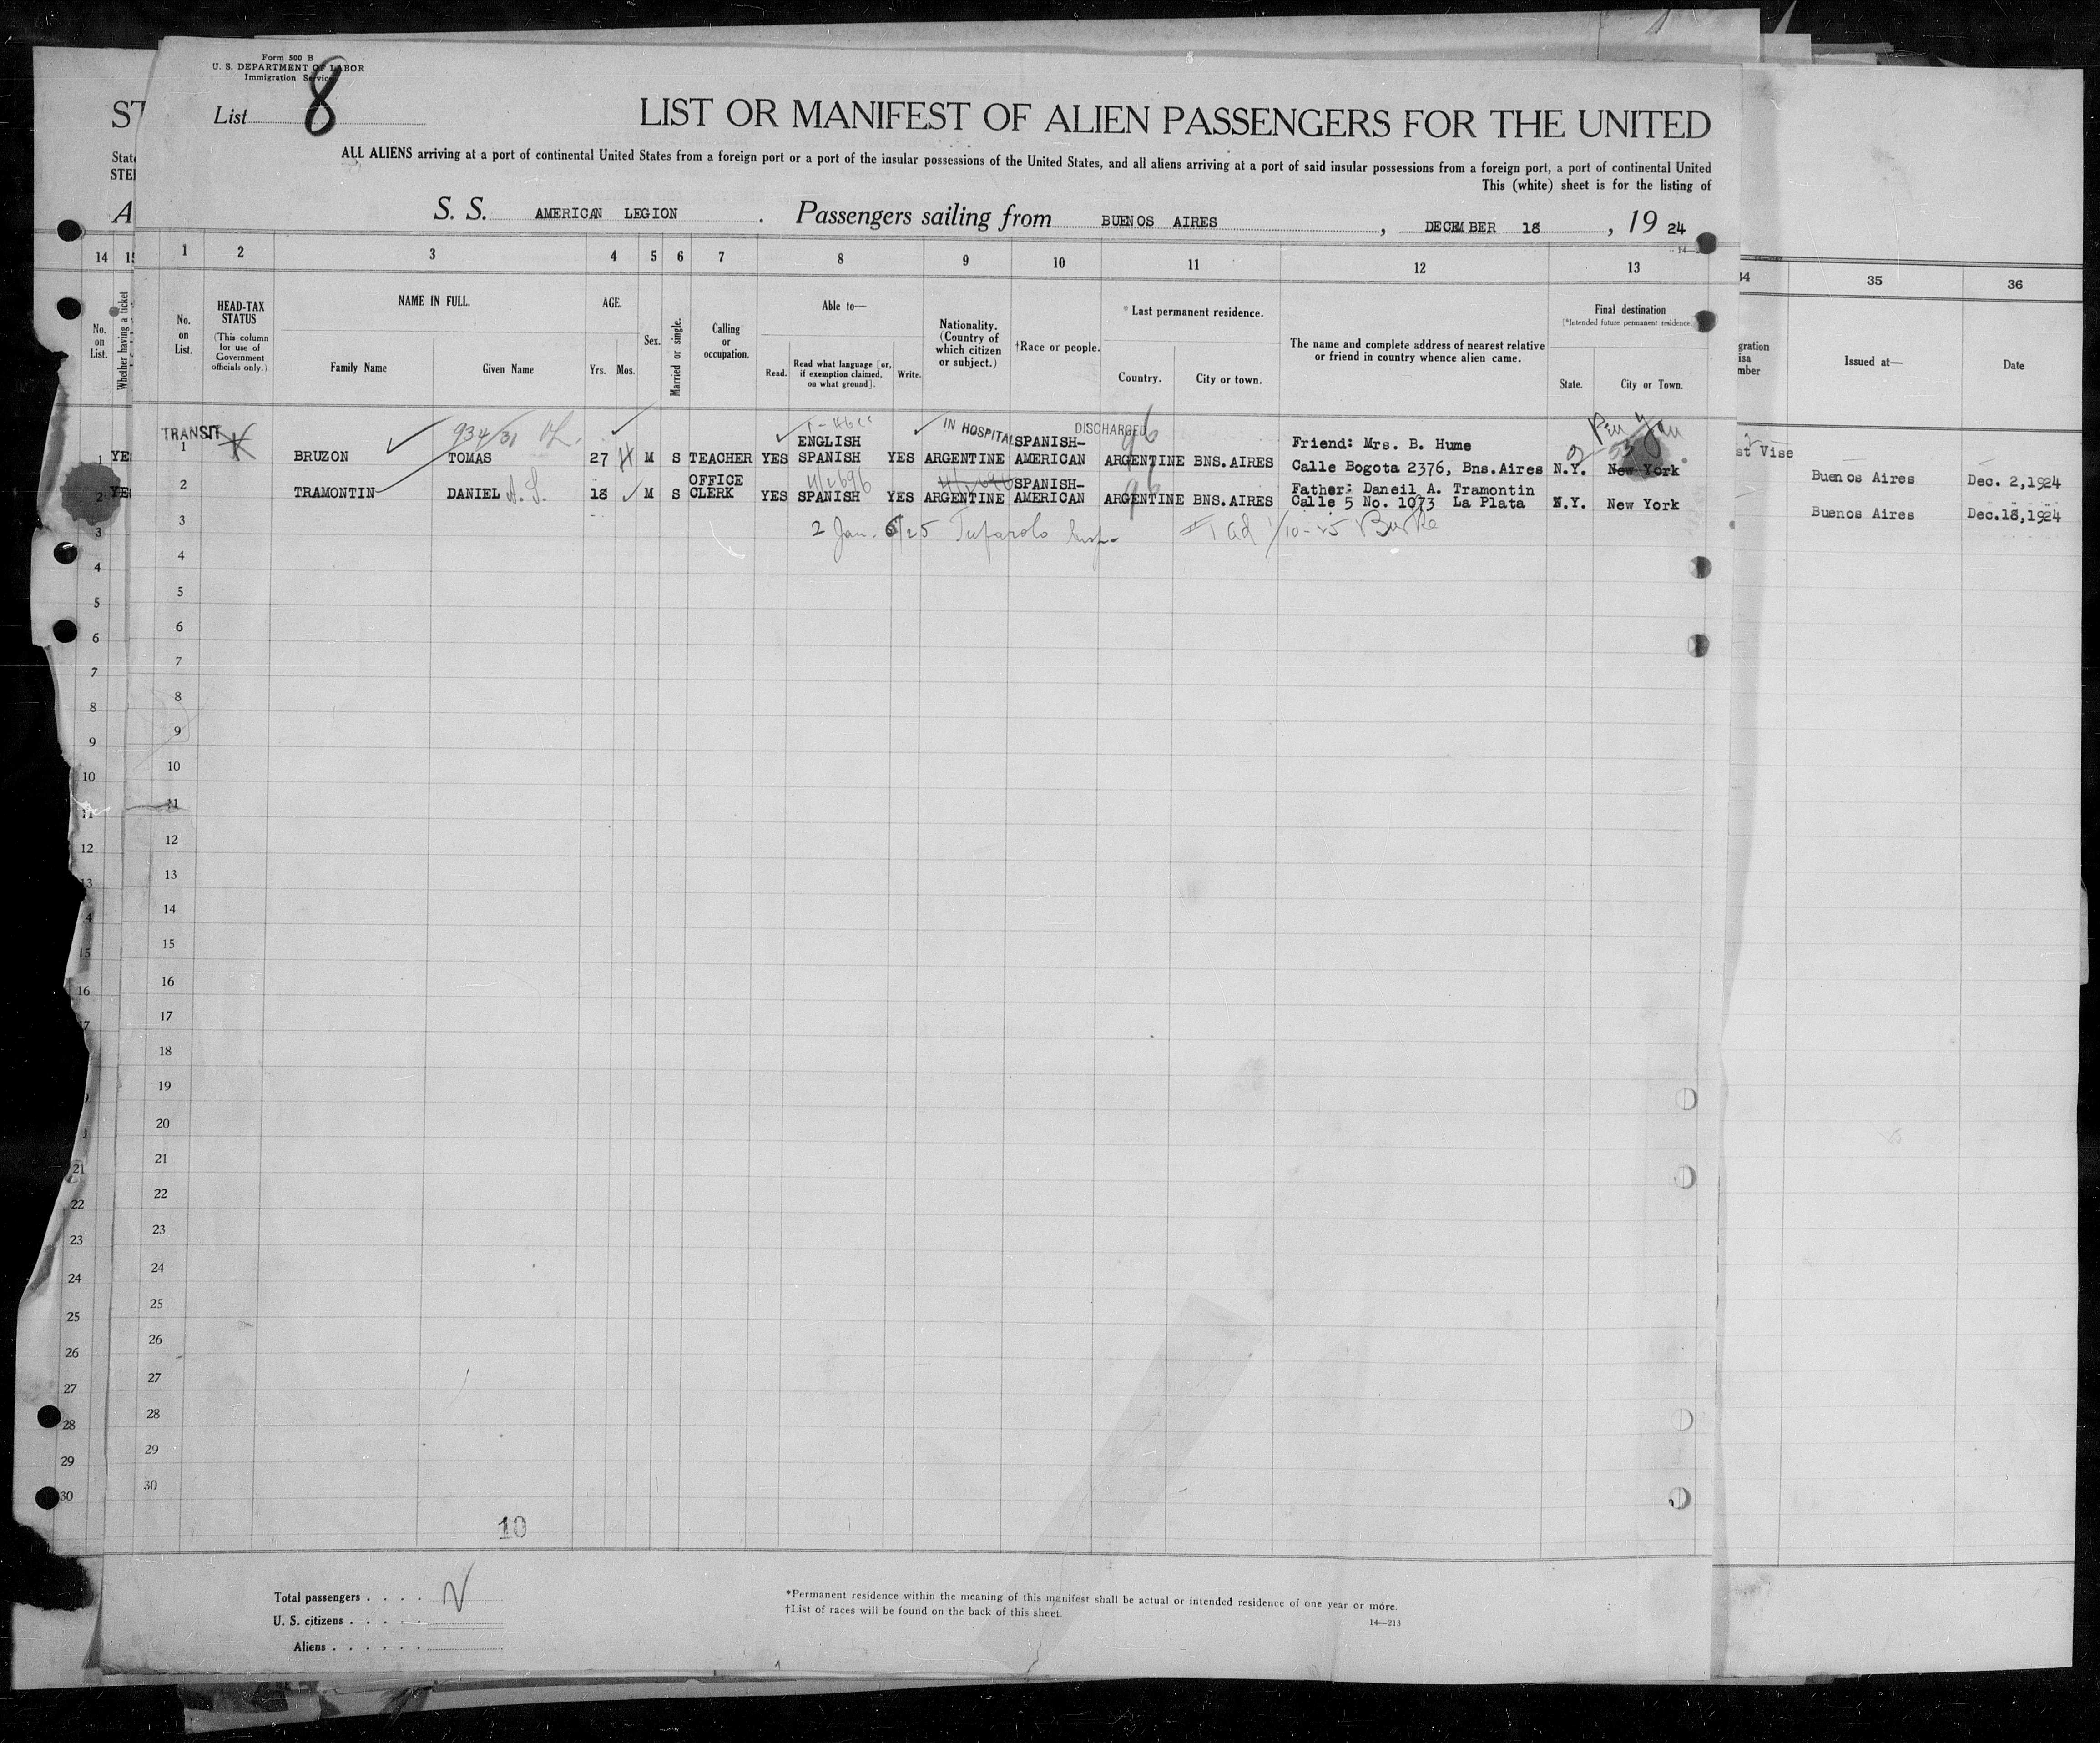 Form 500 B
U. S. DEPARTMENT OF LABOR
Immigration Service
List 8
LIST OR MANIFEST OF ALIEN PASSENGERS FOR THE UNITED
ALL ALIENS arriving at a port of continental United States from a foreign port or a port of the insular possessions of the United States, and all aliens arriving at a port of said insular possessions from a foreign port, a port of continental United
This (white) sheet is for the listing of
S. S. AMERICAN LEGION . Passengers sailing from BUENOS AIRES , DECEMBER 18 , 19 24
14 1 2 3 4 5 6 7 8 9 10 11 12 13 34 35 36
No. on List.
Whether having a ticket
No. on List.
HEAD-TAX STATUS
(This column for use of Government officials only.)
NAME IN FULL.
Family Name
Given Name
AGE.
Yrs. Mos.
Sex.
Married or single.
Calling or occupation.
Able to—
Read.
Read what language [or, if exemption claimed, on what ground].
Write.
Nationality. (Country of which citizen or subject.)
†Race or people.
*Last permanent residence.
Country.
City or town.
The name and complete address of nearest relative or friend in country whence alien came.
Final destination
(*Intended future permanent residence.
State.
City or Town.
Issued at—
Date
TRANSIT
934/31
IN HOSPITAL
DISCHARGED
Pen Yan
1 BRUZON TOMAS 27 M S TEACHER YES ENGLISH SPANISH YES ARGENTINE SPANISH-AMERICAN ARGENTINE BNS.AIRES Friend: Mrs. B. Hume Calle Bogota 2376, Bns.Aires N.Y. New York
Vise Buenos Aires Dec. 2,1924
2 TRAMONTIN DANIEL A. S. 18 M S OFFICE CLERK YES SPANISH YES ARGENTINE SPANISH-AMERICAN ARGENTINE BNS.AIRES Father: Daneil A. Tramontin Calle 5 No. 1073 La Plata N.Y. New York
Buenos Aires Dec.18,1924
2 Jan. 6/25 Tuparolo Insp.
#1 ad 1/10-25 Burke
3
4
5
6
7
8
9
10
11
12
13
14
15
16
17
18
19
20
21
22
23
24
25
26
27
28
29
30
10
Total passengers . . . .
U. S. citizens . . . . .
Aliens . . . . . .
*Permanent residence within the meaning of this manifest shall be actual or intended residence of one year or more.
†List of races will be found on the back of this sheet.
14—213